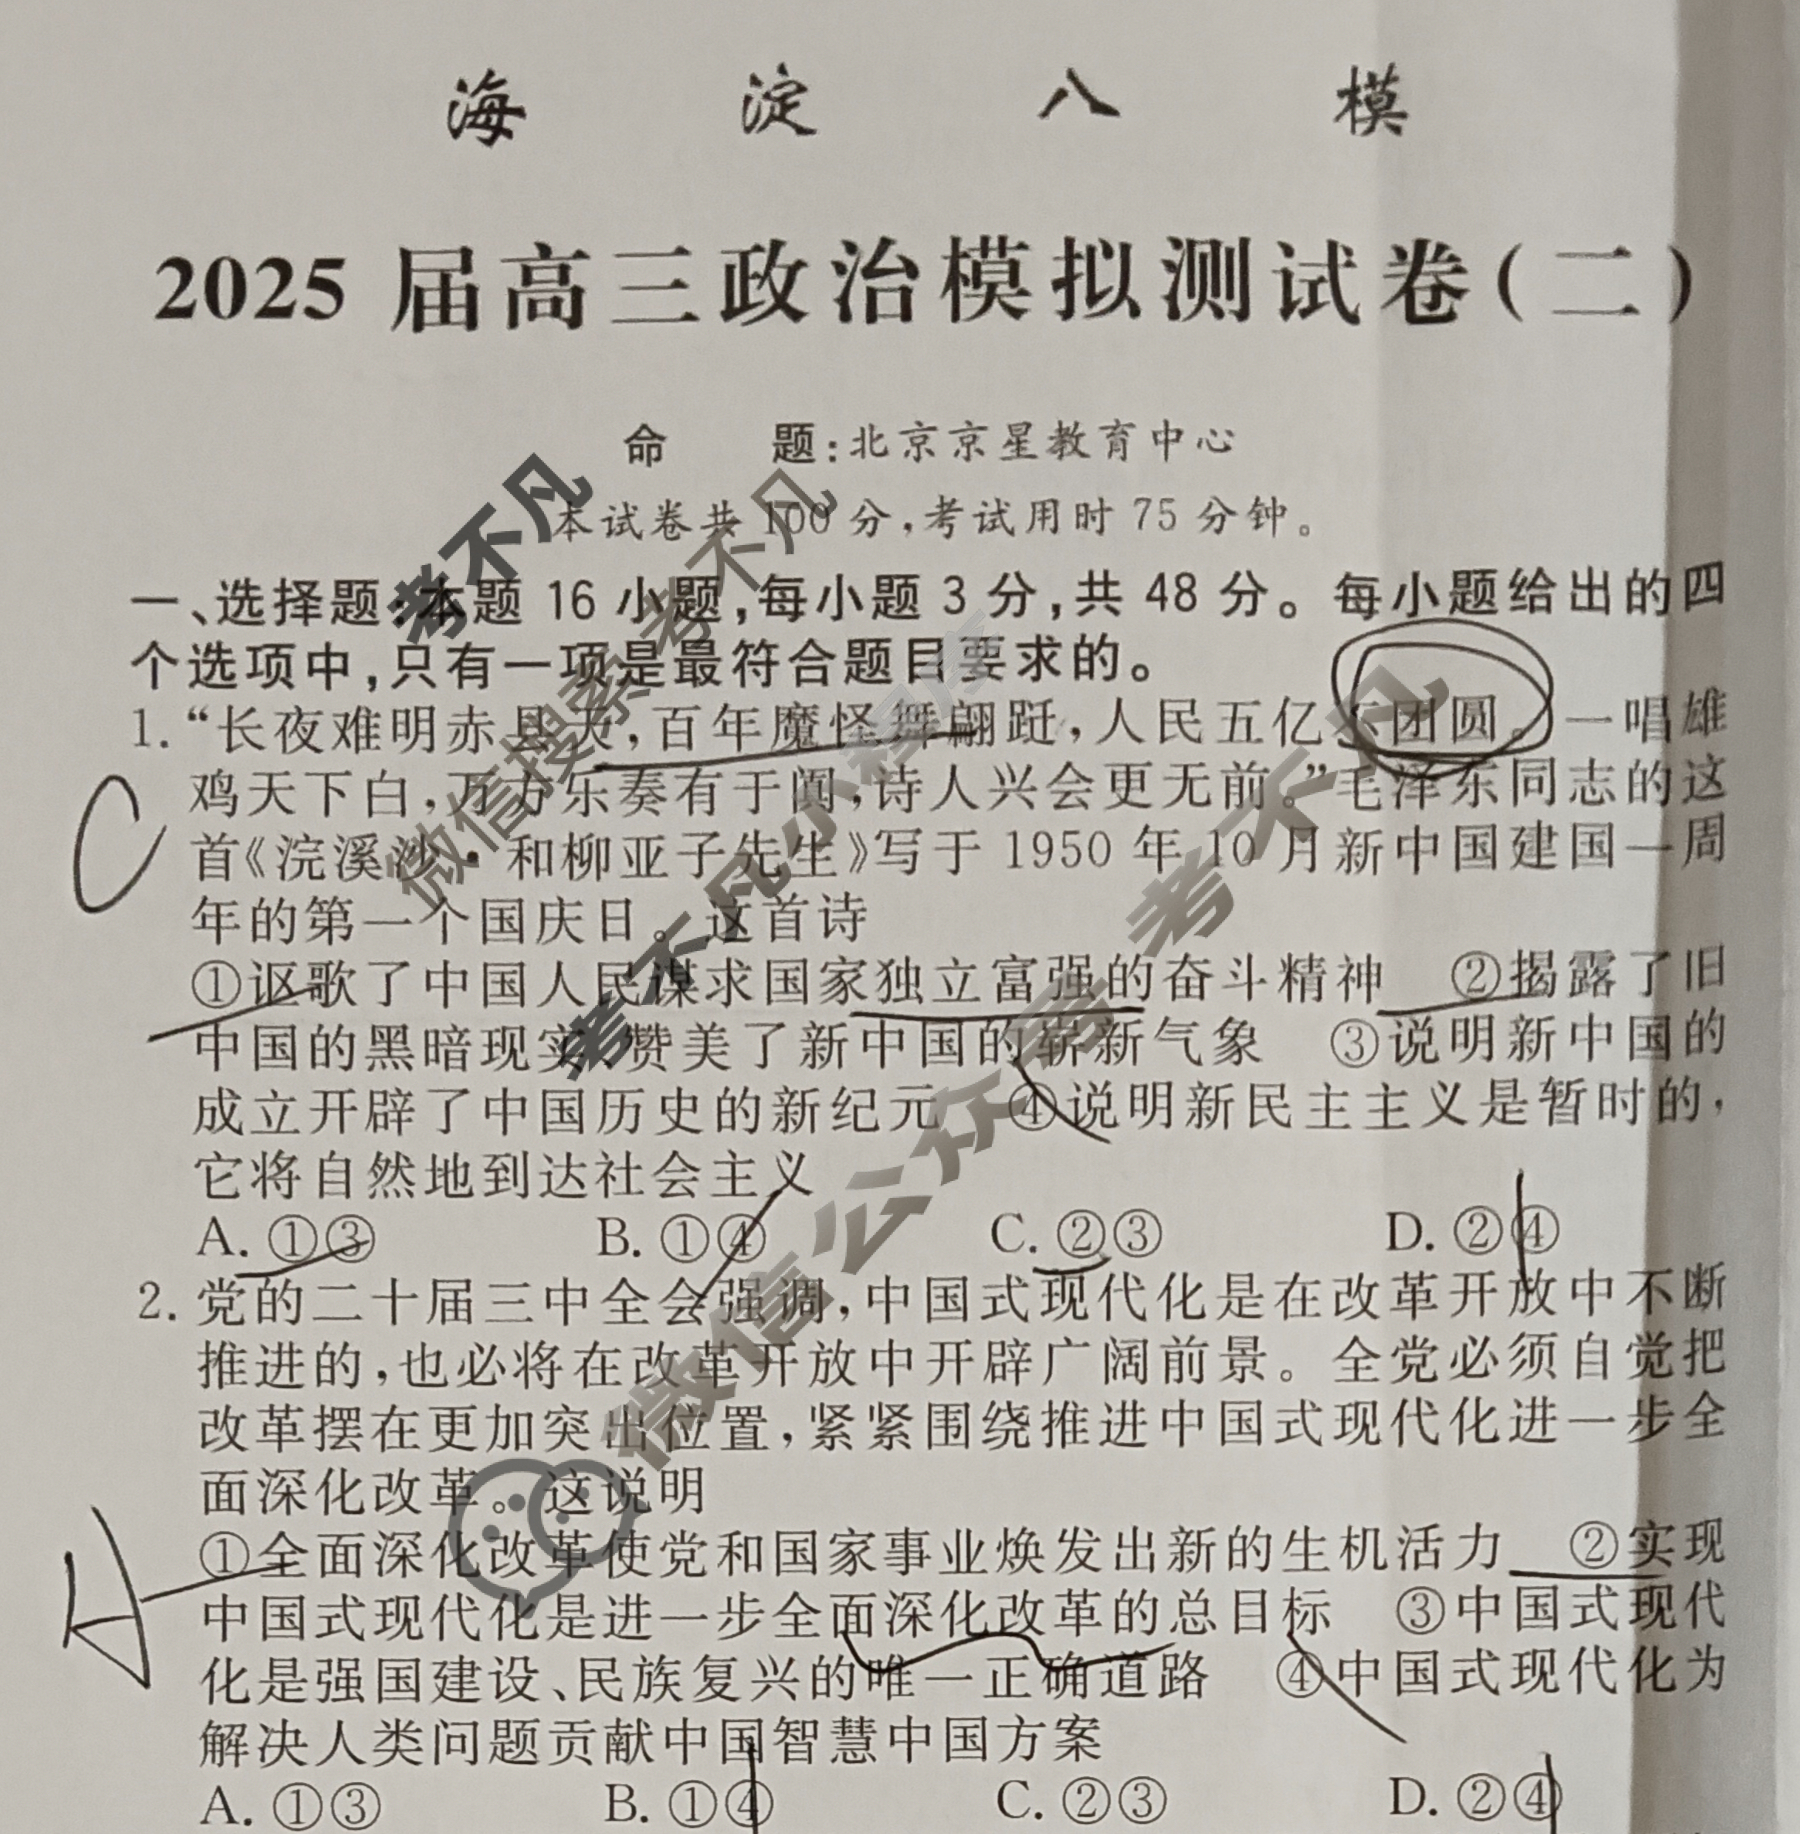 海淀八模
2025届高三政治模拟测试卷(二)
命 题:北京京星教育中心
本试卷共100分,考试用时75分钟。
一、选择题:本题16小题,每小题3分,共48分。每小题给出的四
个选项中,只有一项是最符合题目要求的。
1.“长夜难明赤县天,百年魔怪舞翩跹,人民五亿不团圆。一唱雄
鸡天下白,万方乐奏有于阗,诗人兴会更无前。”毛泽东同志的这
首《浣溪沙·和柳亚子先生》写于1950年10月新中国建国一周
年的第一个国庆日。这首诗
①讴歌了中国人民谋求国家独立富强的奋斗精神 ②揭露了旧
中国的黑暗现实、赞美了新中国的崭新气象 ③说明新中国的
成立开辟了中国历史的新纪元 ④说明新民主主义是暂时的,
它将自然地到达社会主义
A.①③ B.①④ C.②③ D.②④
C
2.党的二十届三中全会强调,中国式现代化是在改革开放中不断
推进的,也必将在改革开放中开辟广阔前景。全党必须自觉把
改革摆在更加突出位置,紧紧围绕推进中国式现代化进一步全
面深化改革。这说明
①全面深化改革使党和国家事业焕发出新的生机活力 ②实现
中国式现代化是进一步全面深化改革的总目标 ③中国式现代
化是强国建设、民族复兴的唯一正确道路 ④中国式现代化为
解决人类问题贡献中国智慧中国方案
A.①③ B.①④ C.②③ D.②④
A
考不凡
微信搜索 考不凡
考不凡小程序
微信公众号 考不凡